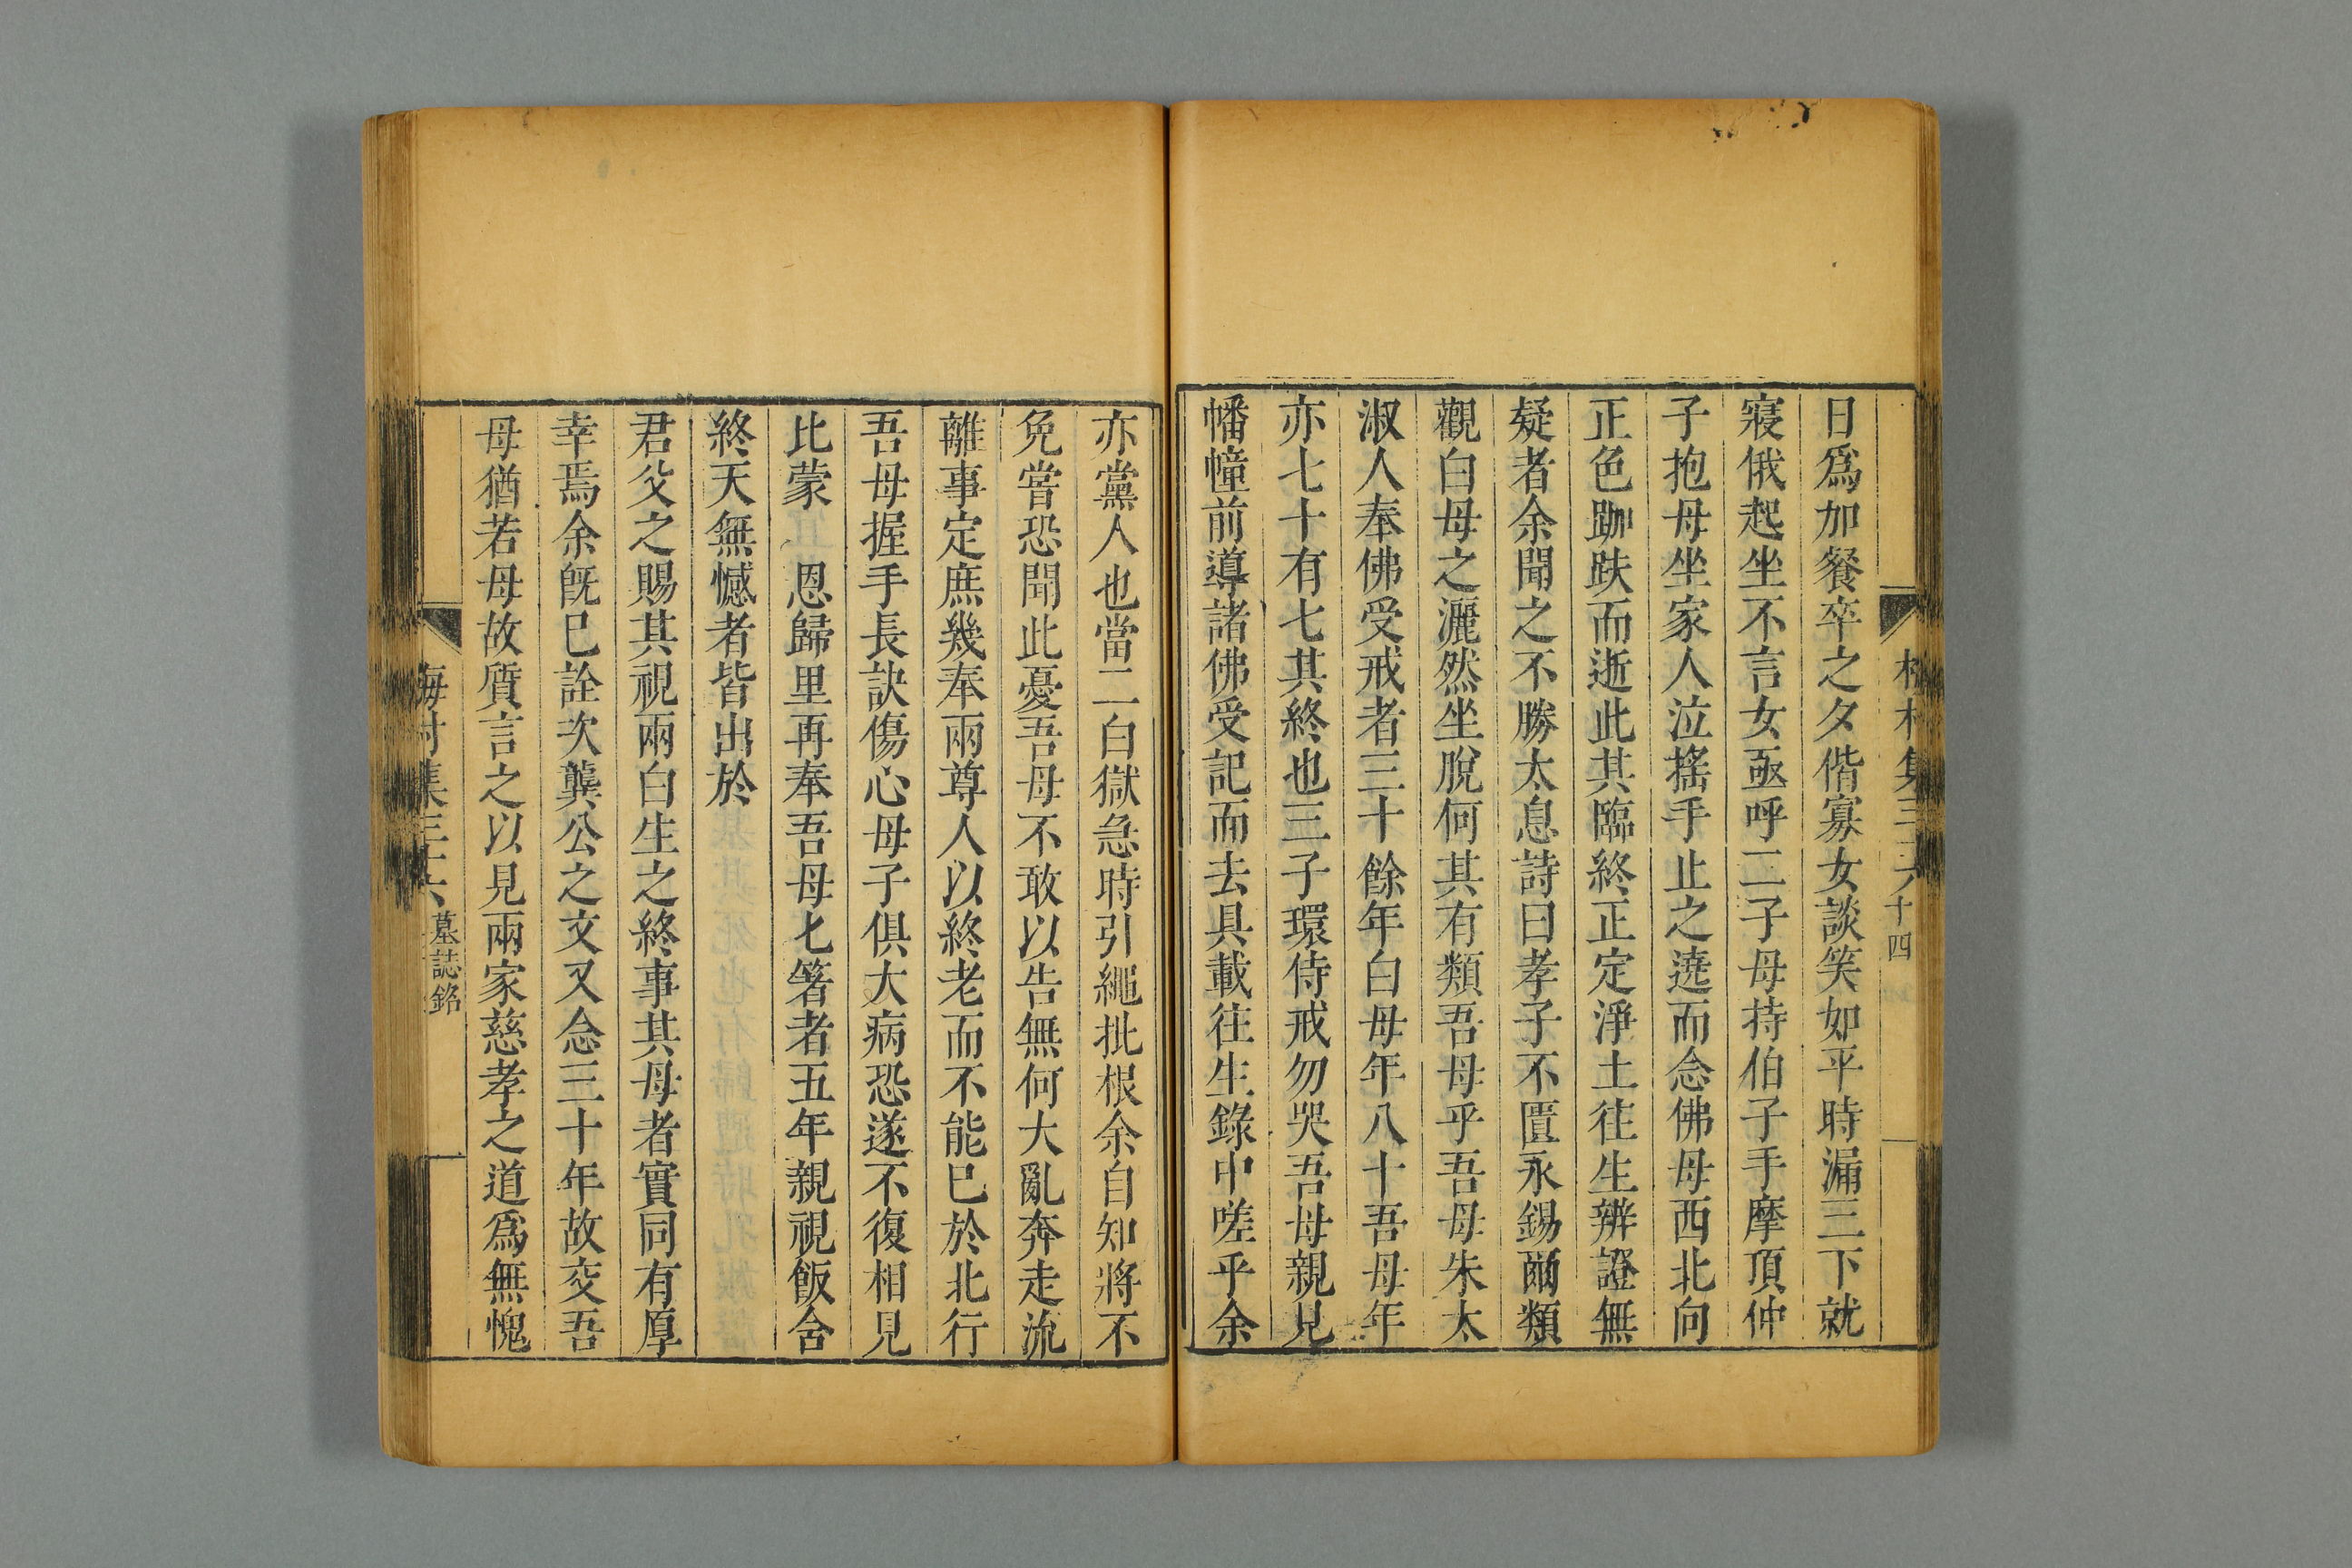 日爲加餐卒之夕偕寡女談笑如平時漏三下就
寢俄起坐不言女亟呼二子母持伯子手摩頂仲
子抱母坐家人泣搖手止之遶而念佛母西北向
正色跏趺而逝此其臨終正定淨土往生辨證無
疑者余聞之不勝太息詩曰孝子不匱永錫爾類
觀白母之灑然坐脫何其有類吾母乎吾母朱太
淑人奉佛受戒者三十餘年白母年八十吾母年
亦七十有七其終也三子環侍戒勿哭吾母親見
幡幢前導諸佛受記而去具載往生錄中嗟乎余
十四
亦黨人也當二白獄急時引繩批根余自知將不
免嘗恐聞此憂吾母不敢以告無何大亂奔走流
離事定庶幾奉兩尊人以終老而不能已於北行
吾母握手長訣傷心母子俱大病恐遂不復相見
比蒙 恩歸里再奉吾母匕箸者五年親視飯含
終天無憾者皆出於
君父之賜其視兩白生之終事其母者實同有厚
幸焉余旣已詮次龔公之文又念三十年故交吾
母猶若母故質言之以見兩家慈孝之道爲無愧
墓誌銘